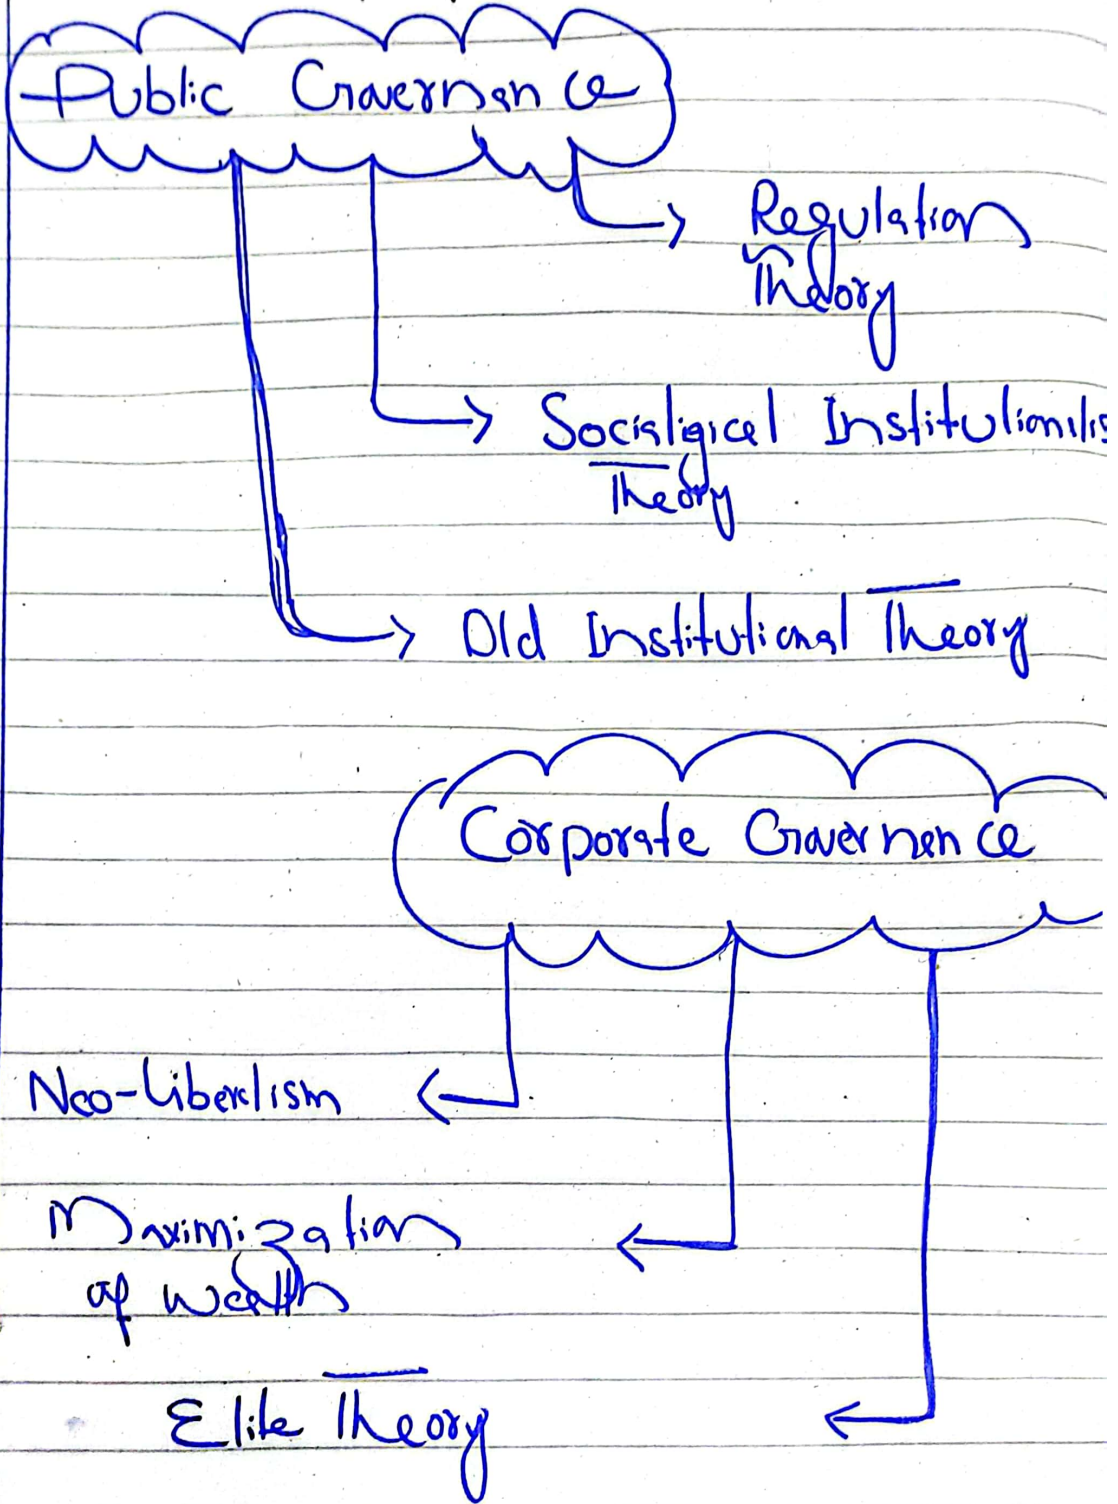 Public Governance
Regulation
Theory
Socialigical Institutionilis
Theory
Old Institutional Theory
Corporate Governence
Neo-Liberalism
Maximization
of Wealth
Elite Theory